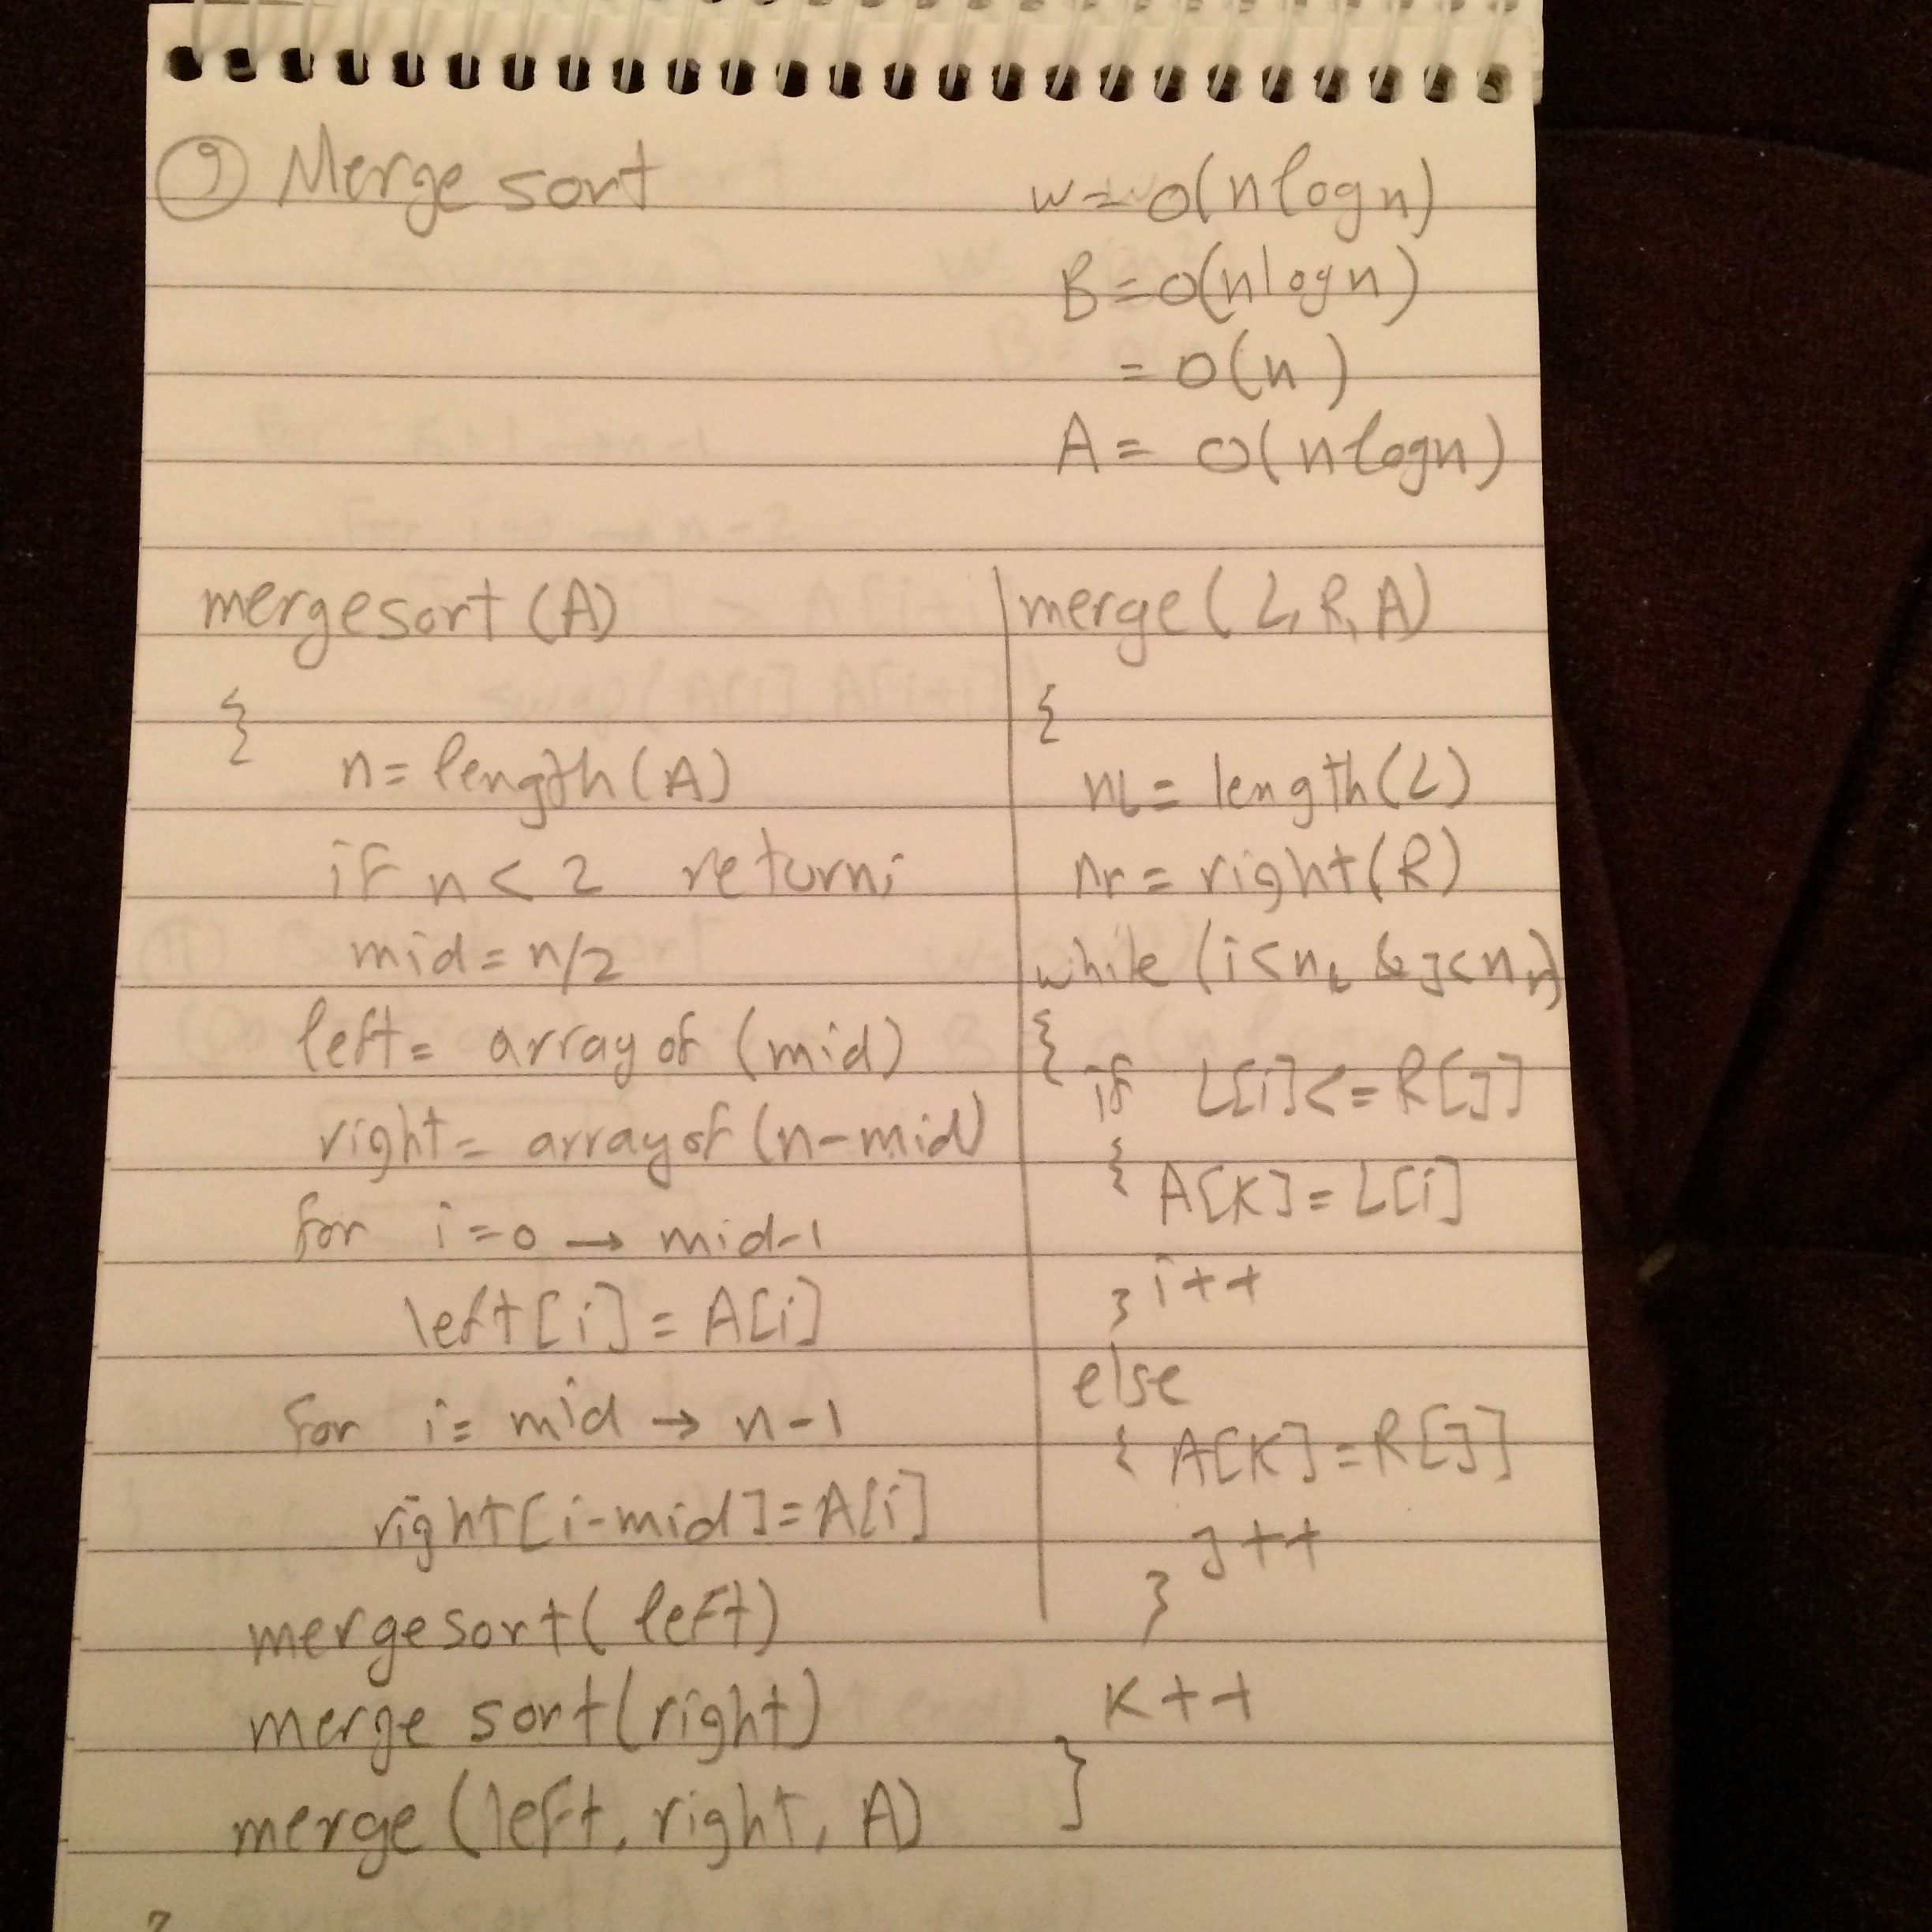 9 Merge sort
w = O(n log n)
B = O(n log n)
= O(n)
A = O(n log n)
mergesort (A)
{
n = length (A)
if n < 2 return;
mid = n/2
left = array of (mid)
right = array of (n-mid)
for i = 0 → mid-1
left[i] = A[i]
for i = mid → n-1
right[i-mid] = A[i]
mergesort( left)
merge sort(right)
merge (left, right, A)
}
merge( L, R, A)
{
nL = length(L)
nr = right(R)
while (i<nL & j<nr)
{
if L[i] <= R[j]
{ A[K] = L[i]
} i++
else
{ A[K] = R[j]
j++
}
K++
}